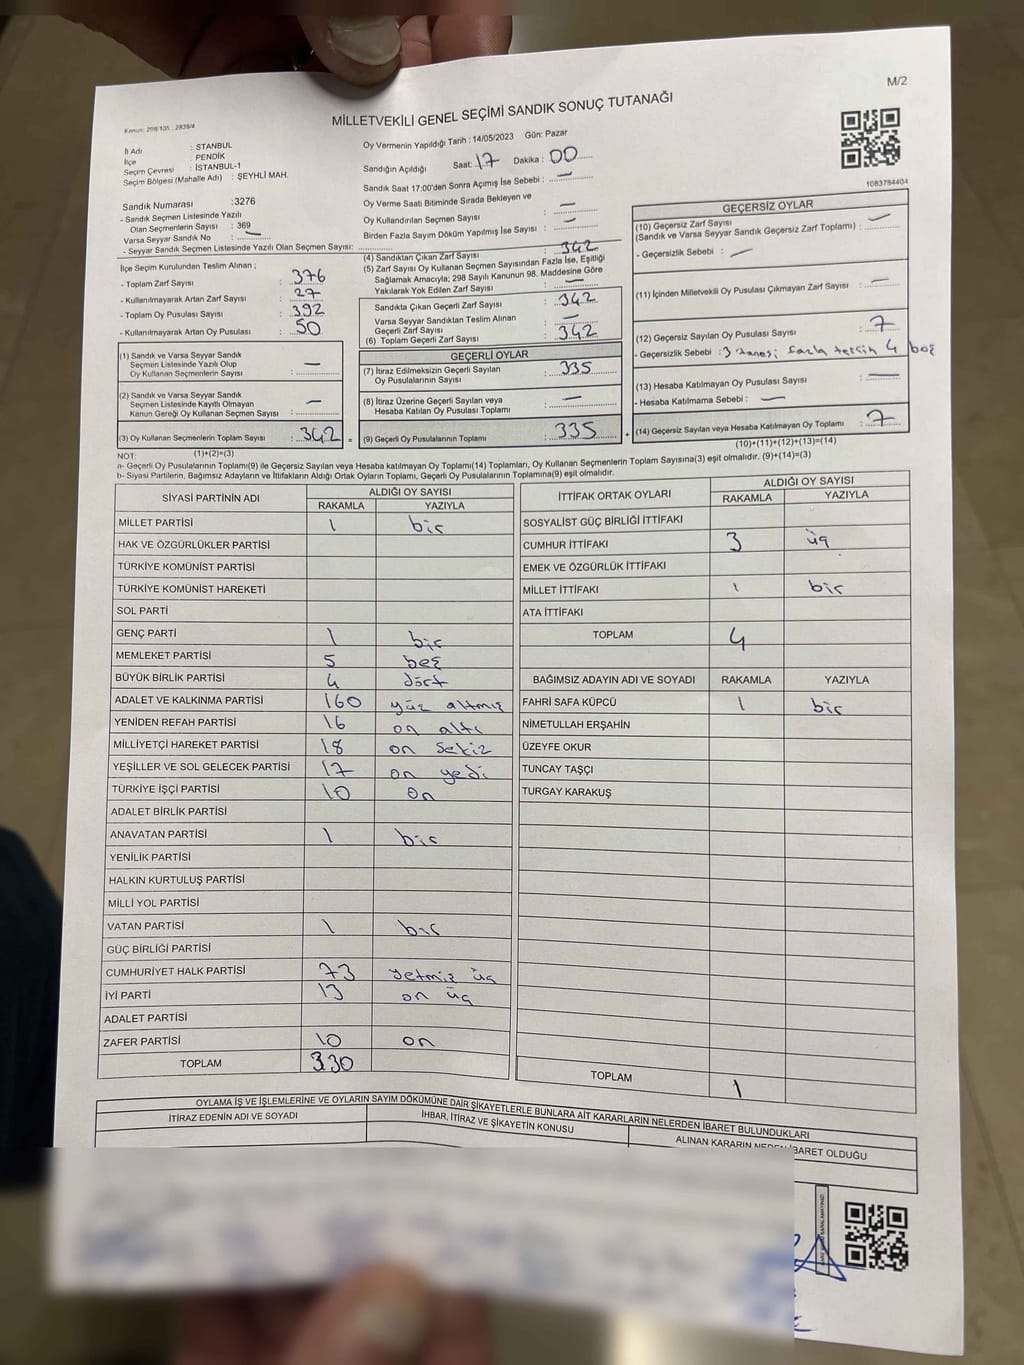 M/2
MİLLETVEKİLİ GENEL SEÇİMİ SANDIK SONUÇ TUTANAĞI
Kanun: 298/105 : 2839/4
İl Adı : STANBUL
İlçe : PENDİK
Seçim Çevresi : İSTANBUL-1
Seçim Bölgesi (Mahalle Adı) : ŞEYHLİ MAH.
Sandık Numarası :3276
- Sandık Seçmen Listesinde Yazılı
Olan Seçmenlerin Sayısı : 369
Varsa Seyyar Sandık No : —
- Seyyar Sandık Seçmen Listesinde Yazılı Olan Seçmen Sayısı:
Oy Vermenin Yapıldığı Tarih : 14/05/2023 Gün: Pazar
Sandığın Açıldığı Saat: 17 Dakika : 00
Sandık Saat 17:00'den Sonra Açımış İse Sebebi : —
Oy Verme Saati Bitiminde Sırada Bekleyen ve
Oy Kullandırılan Seçmen Sayısı : —
Birden Fazla Sayım Döküm Yapılmış İse Sayısı : —
1083784404
İlçe Seçim Kurulundan Teslim Alınan ;
- Toplam Zarf Sayısı : 376
- Kullanılmayarak Artan Zarf Sayısı : 27
- Toplam Oy Pusulası Sayısı : 392
- Kullanılmayarak Artan Oy Pusulası : 50
(1) Sandık ve Varsa Seyyar Sandık
Seçmen Listesinde Yazılı Olup
Oy Kullanan Seçmenlerin Sayısı : —
(2) Sandık ve Varsa Seyyar Sandık
Seçmen Listesinde Kayıtlı Olmayan
Kanun Gereği Oy Kullanan Seçmen Sayısı : —
(3) Oy Kullanan Seçmenlerin Toplam Sayısı : 342 =
(4) Sandıktan Çıkan Zarf Sayısı : 342
(5) Zarf Sayısı Oy Kullanan Seçmen Sayısından Fazla İse, Eşitliği
Sağlamak Amacıyla; 298 Sayılı Kanunun 98. Maddesine Göre
Yakılarak Yok Edilen Zarf Sayısı : —
Sandıkta Çıkan Geçerli Zarf Sayısı : 342
Varsa Seyyar Sandıktan Teslim Alınan
Geçerli Zarf Sayısı : —
(6) Toplam Geçerli Zarf Sayısı : 342
GEÇERLİ OYLAR
(7) İtiraz Edilmeksizin Geçerli Sayılan
Oy Pusulalarının Sayısı : 335
(8) İtiraz Üzerine Geçerli Sayılan veya
Hesaba Katılan Oy Pusulası Toplamı : —
(9) Geçerli Oy Pusulalarının Toplamı : 335 +
GEÇERSİZ OYLAR
(10) Geçersiz Zarf Sayısı
(Sandık ve Varsa Seyyar Sandık Geçersiz Zarf Toplamı) : —
- Geçersizlik Sebebi : —
(11) İçinden Milletvekili Oy Pusulası Çıkmayan Zarf Sayısı : —
(12) Geçersiz Sayılan Oy Pusulası Sayısı : 7
- Geçersizlik Sebebi : 3 tanesi fazla tercih 4 boş
(13) Hesaba Katılmayan Oy Pusulası Sayısı : —
- Hesaba Katılmama Sebebi : —
(14) Geçersiz Sayılan veya Hesaba Katılmayan Oy Toplamı : 7
(1)+(2)=(3)
(10)+(11)+(12)+(13)=(14)
NOT:
a- Geçerli Oy Pusulalarının Toplamı(9) ile Geçersiz Sayılan veya Hesaba katılmayan Oy Toplamı(14) Toplamları, Oy Kullanan Seçmenlerin Toplam Sayısına(3) eşit olmalıdır. (9)+(14)=(3)
b- Siyasi Partilerin, Bağımsız Adayların ve İttifakların Aldığı Ortak Oyların Toplamı, Geçerli Oy Pusulalarının Toplamına(9) eşit olmalıdır.
SİYASİ PARTİNİN ADI ALDIĞI OY SAYISI
RAKAMLA YAZIYLA
MİLLET PARTİSİ 1 bir
HAK VE ÖZGÜRLÜKLER PARTİSİ
TÜRKİYE KOMÜNİST PARTİSİ
TÜRKİYE KOMÜNİST HAREKETİ
SOL PARTİ
GENÇ PARTİ 1 bir
MEMLEKET PARTİSİ 5 beş
BÜYÜK BİRLİK PARTİSİ 4 dört
ADALET VE KALKINMA PARTİSİ 160 yüz altmış
YENİDEN REFAH PARTİSİ 16 on altı
MİLLİYETÇİ HAREKET PARTİSİ 18 on sekiz
YEŞİLLER VE SOL GELECEK PARTİSİ 17 on yedi
TÜRKİYE İŞÇİ PARTİSİ 10 on
ADALET BİRLİK PARTİSİ
ANAVATAN PARTİSİ 1 bir
YENİLİK PARTİSİ
HALKIN KURTULUŞ PARTİSİ
MİLLİ YOL PARTİSİ
VATAN PARTİSİ 1 bir
GÜÇ BİRLİĞİ PARTİSİ
CUMHURİYET HALK PARTİSİ 73 yetmiş üç
İYİ PARTİ 13 on üç
ADALET PARTİSİ
ZAFER PARTİSİ 10 on
TOPLAM 330
İTTİFAK ORTAK OYLARI ALDIĞI OY SAYISI
RAKAMLA YAZIYLA
SOSYALİST GÜÇ BİRLİĞİ İTTİFAKI
CUMHUR İTTİFAKI 3 üç
EMEK VE ÖZGÜRLÜK İTTİFAKI
MİLLET İTTİFAKI 1 bir
ATA İTTİFAKI
TOPLAM 4
BAĞIMSIZ ADAYIN ADI VE SOYADI RAKAMLA YAZIYLA
FAHRİ SAFA KÜPCÜ 1 bir
NİMETULLAH ERŞAHİN
ÜZEYFE OKUR
TUNCAY TAŞÇI
TURGAY KARAKUŞ
TOPLAM 1
OYLAMA İŞ VE İŞLEMLERİNE VE OYLARIN SAYIM DÖKÜMÜNE DAİR ŞİKAYETLERLE BUNLARA AİT KARARLARIN NELERDEN İBARET BULUNDUKLARI
İTİRAZ EDENİN ADI VE SOYADI
İHBAR, İTİRAZ VE ŞİKAYETİN KONUSU
ALINAN KARARIN NEDEN İBARET OLDUĞU